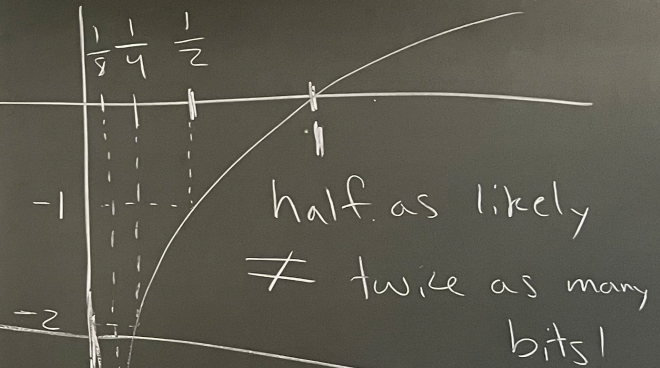 1/8 1/4 1/2
1
-1
half as likely
≠ twice as many
-2
bits!